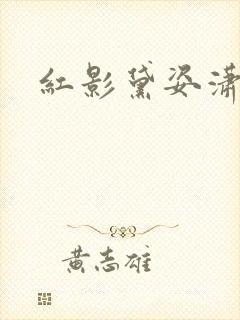 紅影黛姿瀟
黃志雄